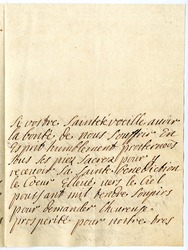 Si vostre Sainteté veille avoir
la bonté de nous souffrir En
Esprit humblement prosternées
sous ses piez sacrés pour y
recevoir sa sainte benediction
le Coeur Elevé vers le Ciel
poussant mil tendre soupirs
pour demander l'heureuse
prosperité pour nostre tres